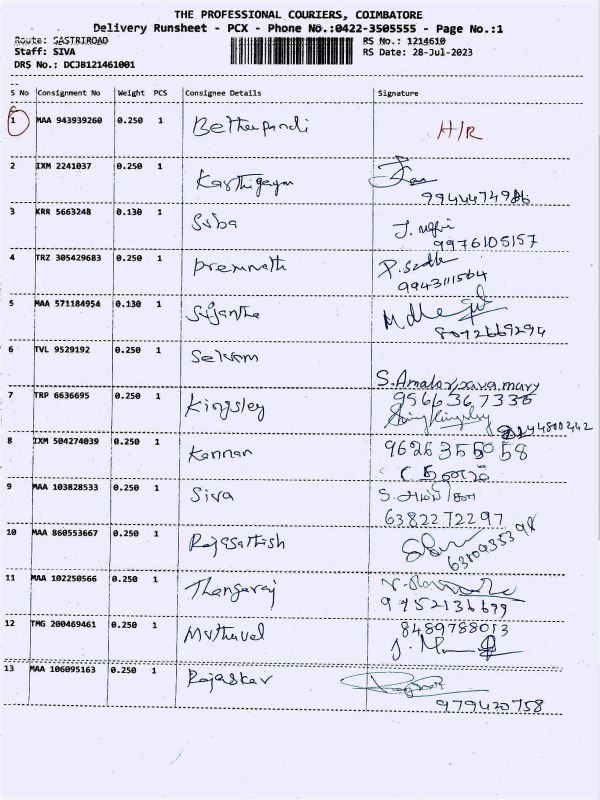 THE PROFESSIONAL COURIERS, COIMBATORE
Delivery Runsheet - PCX - Phone No.:0422-3505555 - Page No.:1
Route: SASTRIROAD RS No.: 1214610
Staff: SIVA RS Date: 28-Jul-2023
DRS No.: DCJB121461001
S No Consignment No Weight PCS Consignee Details Signature
1 MAA 943939260 0.250 1 Bethapandi H/R
2 IXM 2241037 0.250 1 Karthigeyan
9944474986
3 KRR 5663248 0.130 1 Suba
9976105157
4 TRZ 305429683 0.250 1 premnath
9943111564
5 MAA 571184954 0.130 1 Sujantha
8072669294
6 TVL 9529192 0.250 1 Selvam
S. Amalorpavamary
7 TRP 6636695 0.250 1 Kingsley 9566367336
8 IXM 504274039 0.250 1 Kannan 9626355058
9 MAA 103828533 0.250 1 Siva
6382272297
10 MAA 860553667 0.250 1 Rajasathish
11 MAA 102250566 0.250 1 Thangaraj
9752136699
12 TMG 200469461 0.250 1 Muthuvel 8489788013
13 MAA 106095163 0.250 1 Rajaskar
979420758